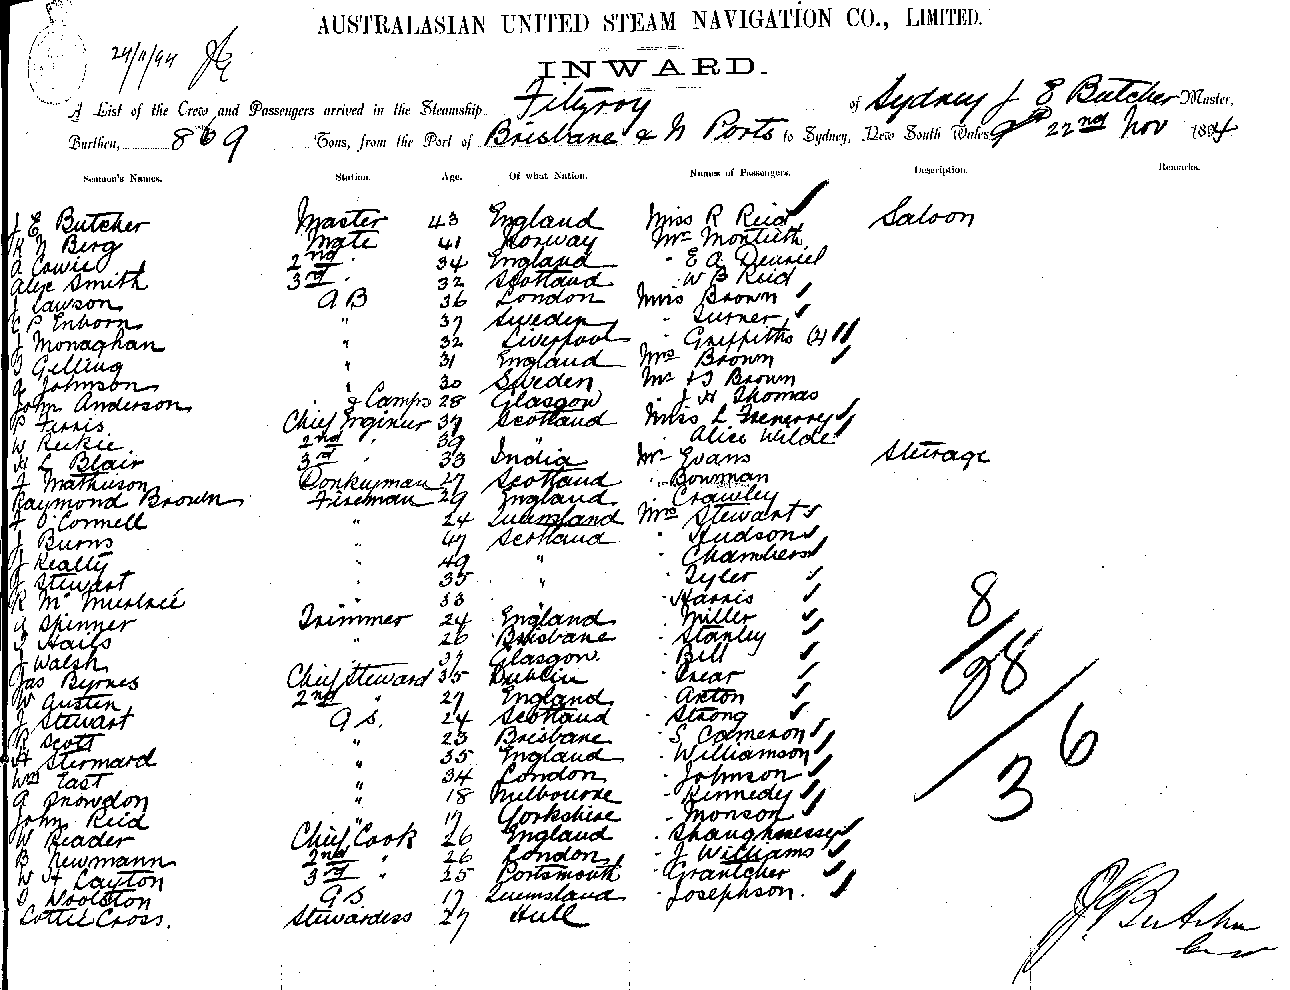 AUSTRALASIAN UNITED STEAM NAVIGATION CO., LIMITED.
24/11/94
INWARD.
A List of the Crew and Passengers arrived in the Steamship Fitzroy of Sydney J E Butcher Master,
Burthen, 869 Tons, from the Port of Brisbane & N Ports to Sydney, New South Wales, 22nd Nov 1894
Seamen's Names. Station. Age. Of what Nation. Names of Passengers. Description. Remarks.
J E Butcher Master 43 England Miss R Reid Saloon
Berg Mate 41 Norway Mr Montieth
A Cowie 2nd " 34 England " E A
Alex Smith 3rd " 32 Scotland " W B Reid
J Lawson A B 36 London Miss Brown
Enborn " 37 Sweden " Turner
J Monaghan " 32 Liverpool " Griffiths
Gelling " 31 England Mrs Brown
Johnson " 30 Sweden Mr Brown
John Anderson " & Lamps 28 Glasgow " J H Thomas
P Ferris Chief Engineer 37 Scotland Miss L
W Reekie 2nd " 39 " " Alice Wilde
L Blair 3rd " 33 India Mr Evans Steerage
J Mathieson Donkeyman 27 Scotland " Bowman
Raymond Brown Fireman 29 England " Crawley
O'Connell " 24 Queensland Mrs Stewart
J Burns " 47 Scotland " Hudson
Kealty " 49 " " Chambers
Stewart " 35 " " Tyler
R " 33 " " Harris
Skinner Trimmer 24 England " Miller
Hails " 26 Brisbane " Stanley
J Walsh " 37 Glasgow " Bill
Jas Byrnes Chief Steward 35 Dublin "
W Austin 2nd " 27 England "
J Stewart G S. 24 Scotland " Strong
Scott " 23 Brisbane " S Cameron
" 35 England " Williamson
Wm East " 34 London " Johnson
Snowdon " 18 Melbourne " Kennedy
John Reid " 17 Yorkshire " Monson
W Reader Chief Cook 26 England " Shaughnessey
B Newmann 2nd " 26 London " J Williams
W H Layton 3rd " 25 Portsmouth " Grantcher
Woolston G S. 17 Queensland " Josephson.
Lottie Cross. Stewardess 27 Hull
8/28/36
J E Butcher